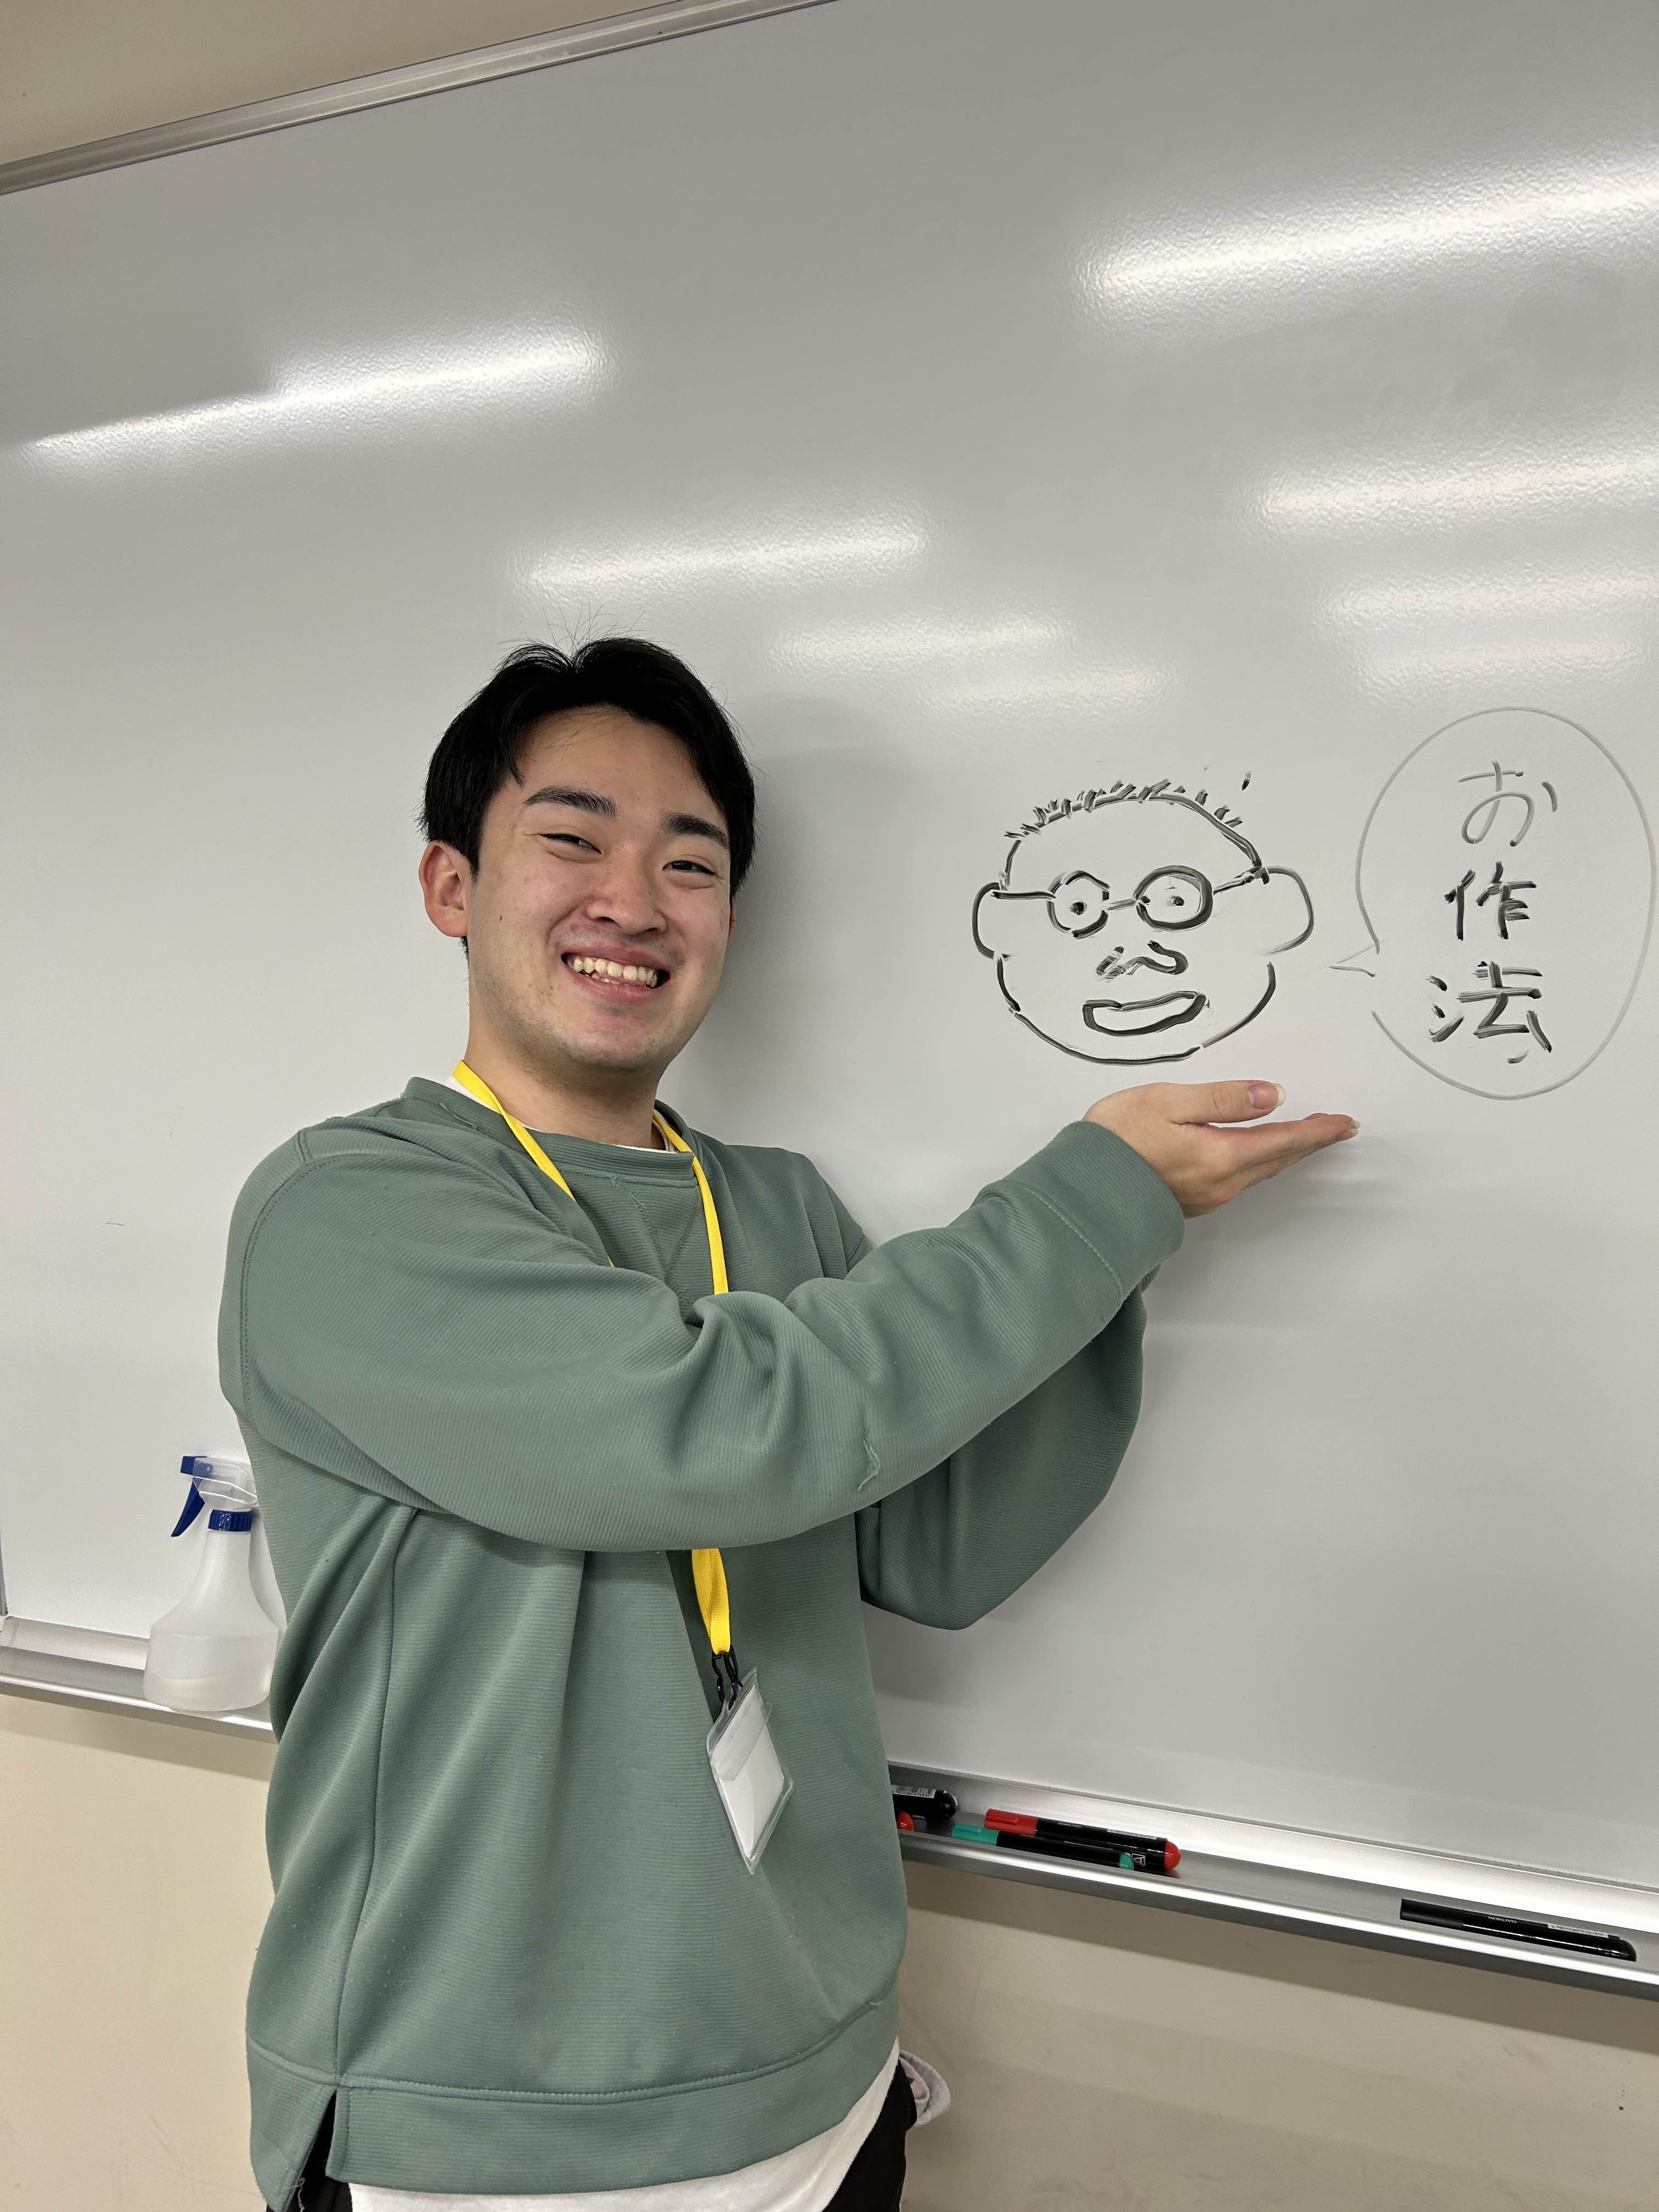 お作法